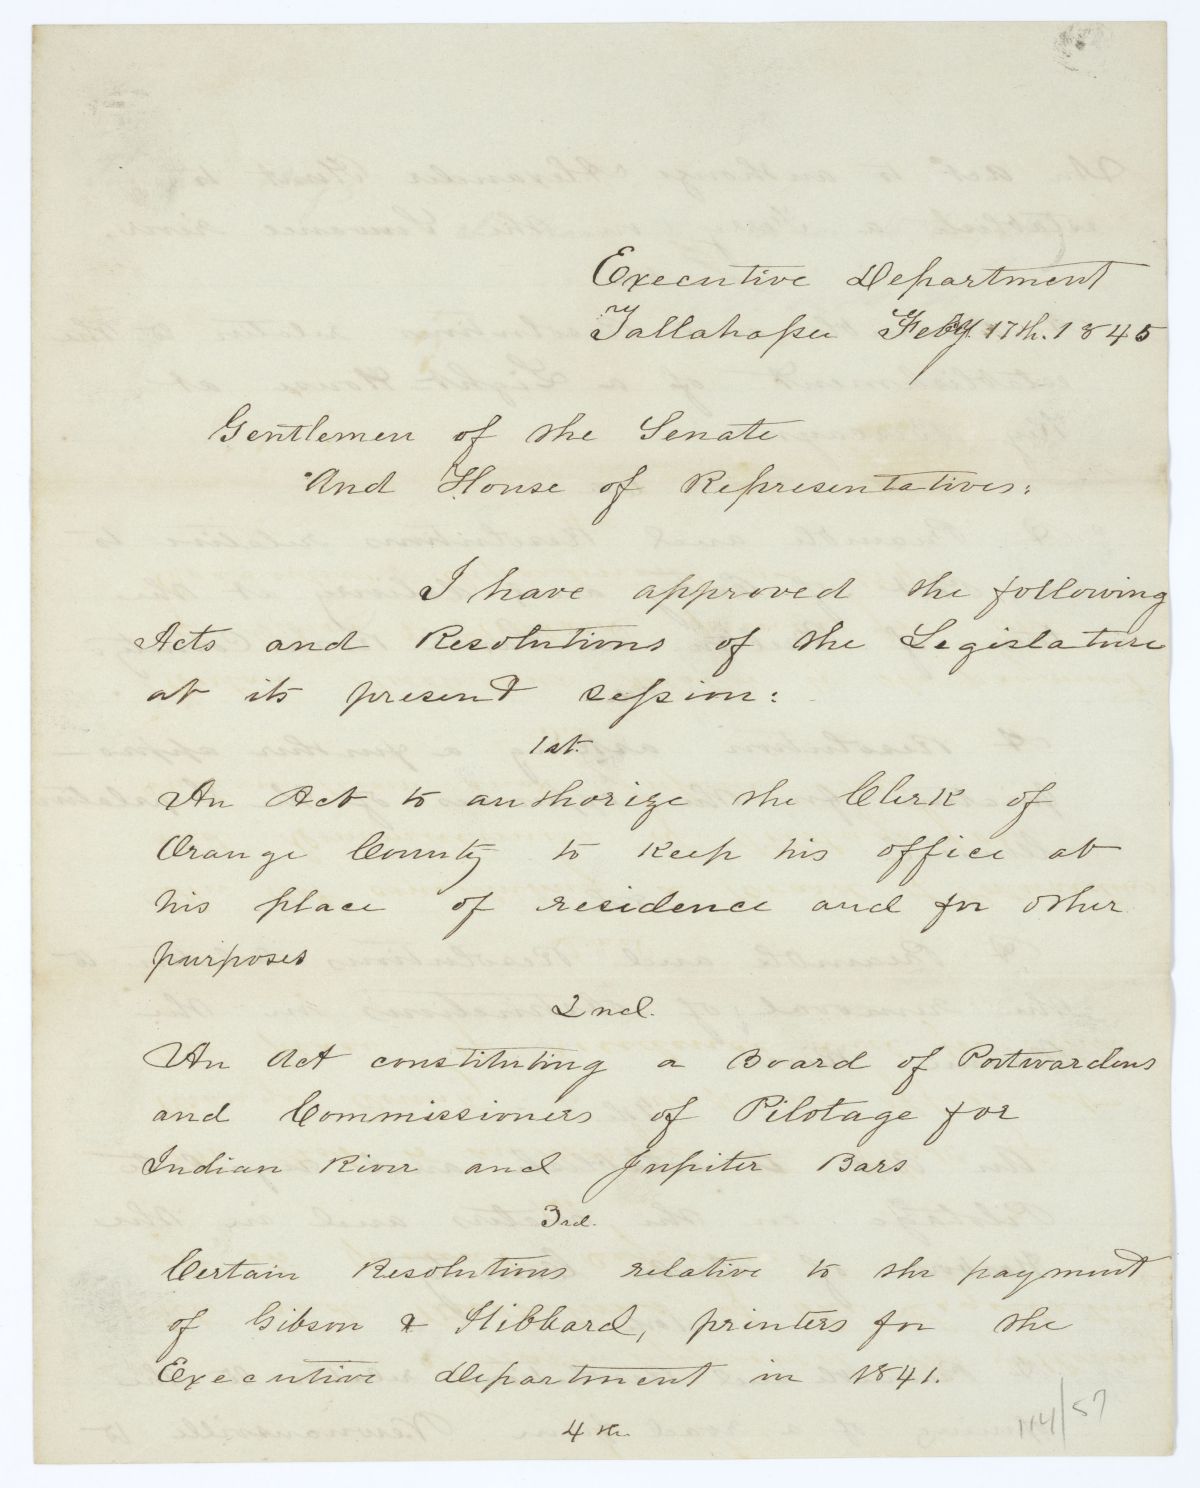 Executive Department
Tallahassee Feby. 17th. 1845
Gentlemen of the Senate
And House of Representatives:
I have approved the following
Acts and Resolutions of the Legislature
at its present session:
1st.
An Act to authorize the Clerk of
Orange County to keep his office at
his place of residence and for other
purposes
2nd.
An Act constituting a Board of Portwardens
and Commissioners of Pilotage for
Indian River and Jupiter Bars
3rd.
Certain Resolutions relative to the payment
of Gibson & Hibbard, printers for the
Executive Department in 1841.
4th.
114/57